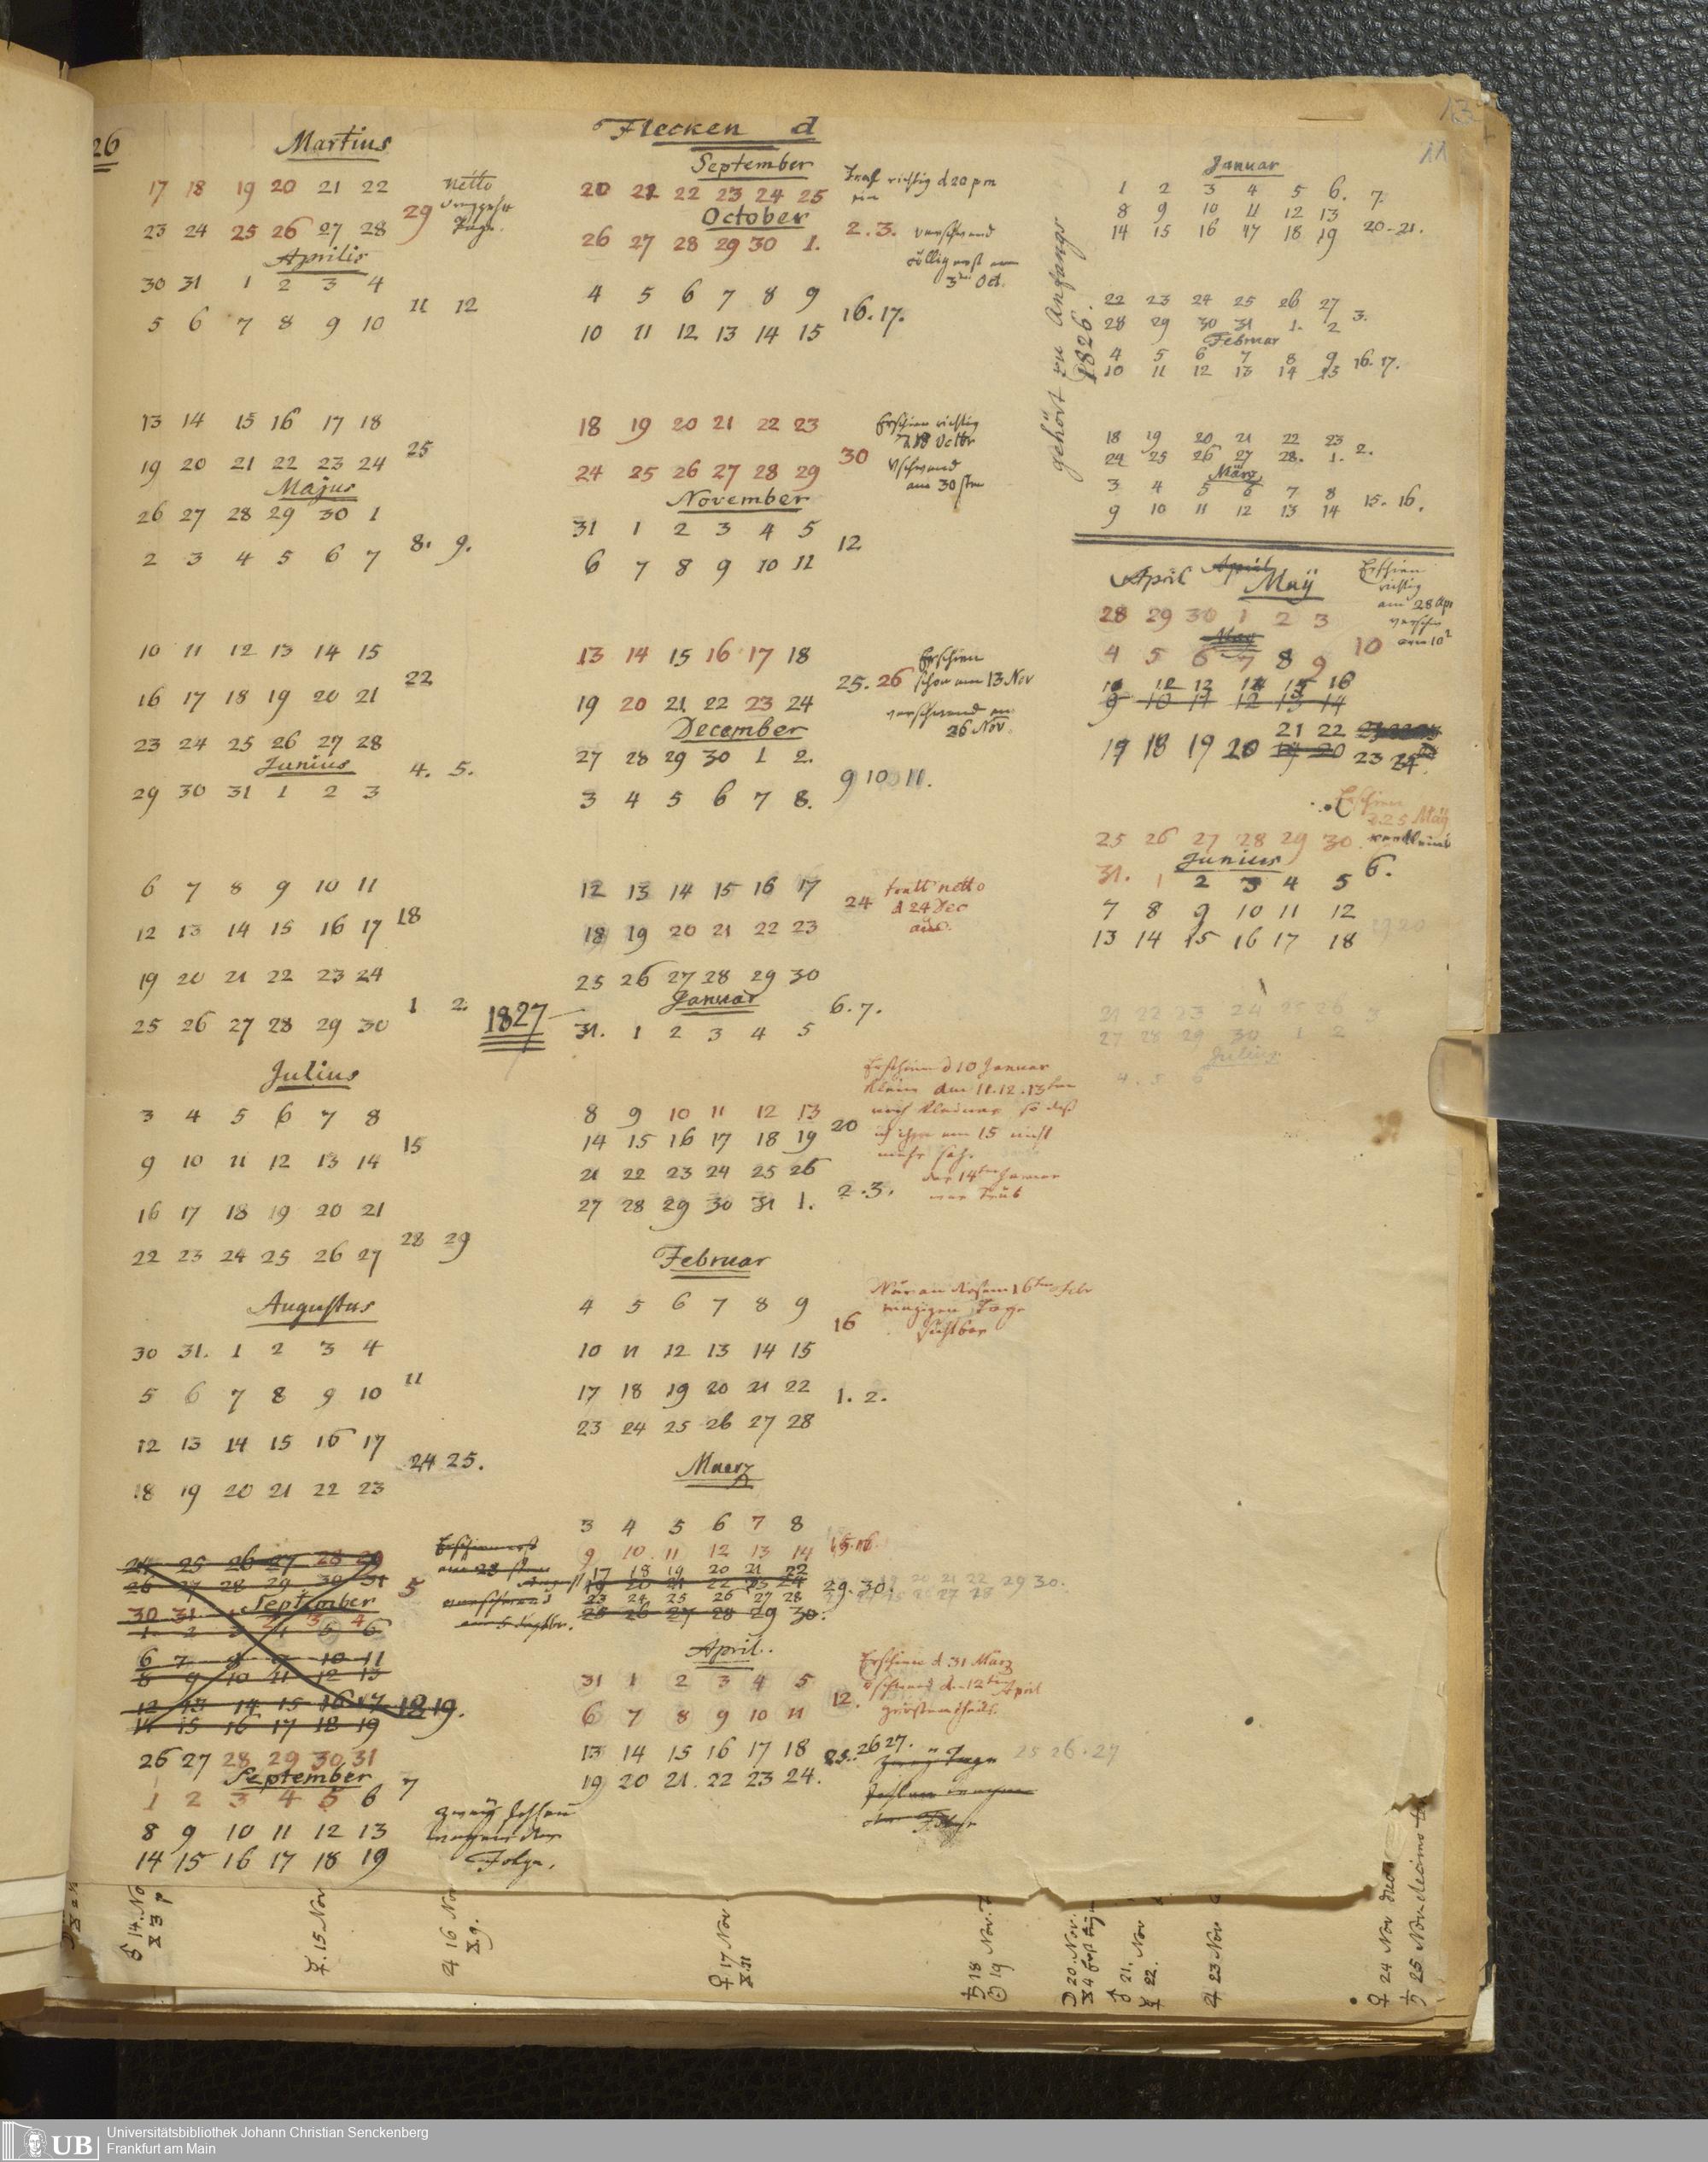 26
Martius
17 18 19 20 21 22
netto
29
23 24 25 26 27 28
Aprilis
30 31 1 2 3 4
11 12
5 6 7 8 9 10
13 14 15 16 17 18
25
19 20 21 22 23 24
Majus
26 27 28 29 30 1
8. 9.
2 3 4 5 6 7
10 11 12 13 14 15
22
16 17 18 19 20 21
23 24 25 26 27 28
Junius
4. 5.
29 30 31 1 2 3
6 7 8 9 10 11
18
12 13 14 15 16 17
19 20 21 22 23 24
1 2
25 26 27 28 29 30
Julius
3 4 5 6 7 8
15
9 10 11 12 13 14
16 17 18 19 20 21
28 29
22 23 24 25 26 27
Augustus
30 31. 1 2 3 4
11
5 6 7 8 9 10
12 13 14 15 16 17
24 25.
18 19 20 21 22 23
24 25 26 27 28 29
26 27 28 29 30 31
5
September
30 31 1 2 3 4
1 2 3 4 5 6
6 7 8 9 10 11
8 9 10 11 12 13
12 13 14 15 16 17 18 19.
14 15 16 17 18 19
26 27 28 29 30 31
September
7
1 2 3 4 5 6
8 9 10 11 12 13
14 15 16 17 18 19
zweÿ fehlen
wegen der
Folge.
Flecken d
September
20 21 22 23 24 25
Traf richtig d 20 pm
ein
October
26 27 28 29 30 1.
2. 3. verschwand
völlig erst am
3ten Oct.
4 5 6 7 8 9
16. 17.
10 11 12 13 14 15
18 19 20 21 22 23
Erschien richtig
d 18 Octbr
30
24 25 26 27 28 29
Vschwand
am 30sten
November
31 1 2 3 4 5
12
6 7 8 9 10 11
13 14 15 16 17 18
Erschien
25. 26 schon am 13 Nov
19 20 21 22 23 24
verschwand am
26 Nov.
December
27 28 29 30 1 2.
9 10 11.
3 4 5 6 7 8.
12 13 14 15 16 17
24
tratt netto
d 24 Dec
aus.
18 19 20 21 22 23
25 26 27 28 29 30
Januar
6. 7.
1827
31. 1 2 3 4 5
Erschien d 10 Januar
klein den 11. 12. 13ten
noch kleiner so daß
ich ihn am 15 nicht
mehr sah.
der 14ten Januar
war trüb
8 9 10 11 12 13
20
14 15 16 17 18 19
21 22 23 24 25 26
2. 3.
27 28 29 30 31 1.
Februar
4 5 6 7 8 9
16
Nur an diesem 16ten Febr
einzigen Tage
sichtbar
10 11 12 13 14 15
17 18 19 20 21 22
1. 2.
23 24 25 26 27 28
Maerz
3 4 5 6 7 8
9 10 11 12 13 14
15. 16.
17 18 19 20 21 22
19 20 21 22 23 24
29. 30.
23 24 25 26 27 28
25 26 27 28 29 30.
April.
31 1 2 3 4 5
Erschien d 31 Marz
Vschwand den 12ten April
12.
6 7 8 9 10 11
13 14 15 16 17 18
25. 26 27.
25 26. 27
19 20 21. 22 23 24.
zweÿ Tage
fehlen wegen
der Folge
gehört zu Anfangs
1826.
Januar
1 2 3 4 5 6. 7.
8 9 10 11 12 13
14 15 16 17 18 19 20-21.
22 23 24 25 26 27
3.
28 29 30 31 1. 2
Februar
4 5 6 7 8 9
16. 17.
10 11 12 13 14 15
18 19 20 21 22 23
2.
24 25 26 27 28. 1.
März
3 4 5 6 7 8
15. 16.
9 10 11 12 13 14
April April Maÿ
Erschien
richtig
am 28 Apr
28 29 30 1 2 3
May
10
4 5 6 7 8 9
9 10 11 12 13 14
21 22
17 18 19 20 19 20 23 24.
Erschien
d. 25 Maÿ
25 26 27 28 29 30.
Junius
6.
31. 1 2 3 4 5
7 8 9 10 11 12
13 14 15 16 17 18
19 20
21 22 23 24 25 26
3
27 28 29 30 1 2
Julius
4. 5 6
♂ 14. No
X 3 p
☿. 15. Nov
♃ 16 Nov
X 9.
♀ 17 Nov
X 11
♄ 18
☉ 19 Nov.
☽ 20. Nov.
♂ 21. Nov
☿ 22.
♃ 23 Nov
♀ 24 Nov
♄ 25 Nov
UB
Universitätsbibliothek Johann Christian Senckenberg
Frankfurt am Main